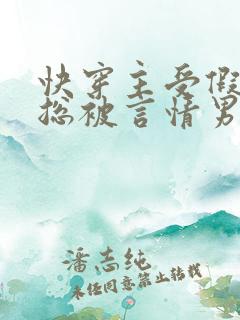 快穿主受假
总被言情男
潘志纯
未经同意禁止转载